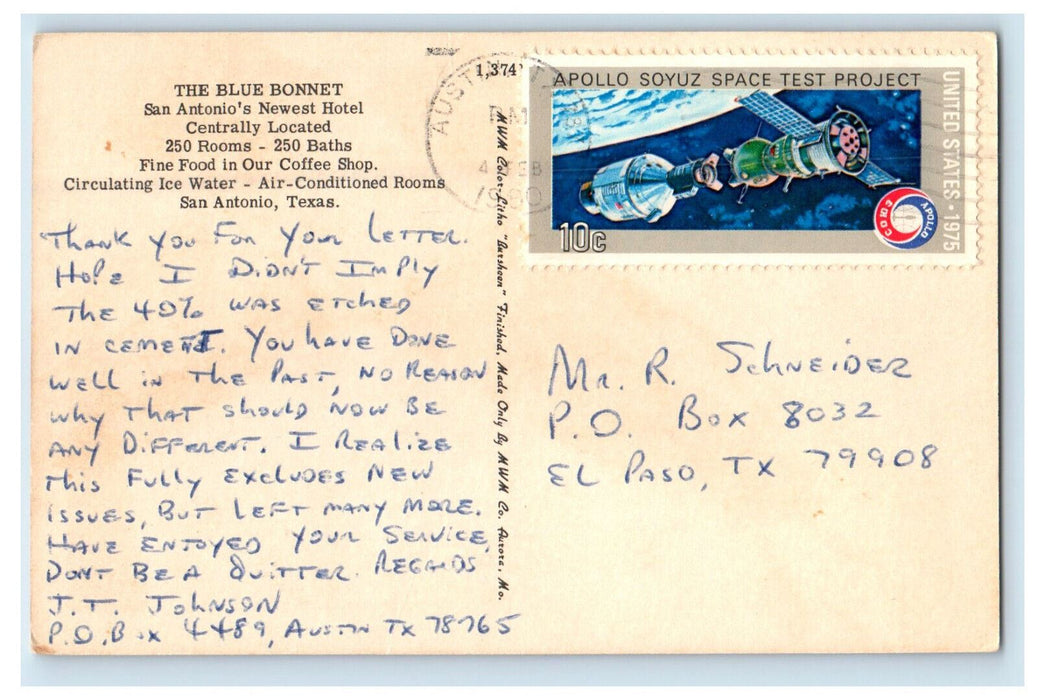 THE BLUE BONNET
San Antonio's Newest Hotel
Centrally Located
250 Rooms - 250 Baths
Fine Food in Our Coffee Shop.
Circulating Ice Water - Air-Conditioned Rooms
San Antonio, Texas.
THANK YOU FOR YOUR LETTER.
HOPE I DIDN'T IMPLY
THE 40% WAS ETCHED
IN CEMENT. YOU HAVE DONE
WELL IN THE PAST, NO REASON
WHY THAT SHOULD NOW BE
ANY DIFFERENT. I REALIZE
THIS FULLY EXCLUDES NEW
ISSUES, BUT LEFT MANY MORE.
HAVE ENJOYED YOUR SERVICE,
DON'T BE A QUITTER. REGARDS
J.T. JOHNSON
P.O. BOX 4489, AUSTIN TX 78765
1,374
MWM Color-Litho "Bursheen" Finished, Made Only By MWM Co. Aurora, Mo.
AUSTIN
4 FEB
1980
APOLLO SOYUZ SPACE TEST PROJECT
UNITED STATES • 1975
10c
APOLLO
СОЮЗ
MR. R. SCHNEIDER
P.O. BOX 8032
EL PASO, TX 79908